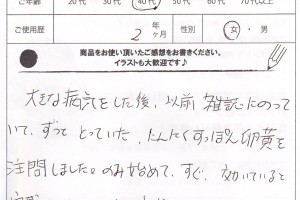 ご年齢 20代 30代 40代 50代 60代 70代以上
ご使用歴 2年 ヶ月 性別 女・男
商品をお使い頂いたご感想をお書きください。
イラストも大歓迎です♪
大きな病気をした後、以前 雑誌にのって
いて、ずっと とっていた、にんにくすっぽん卵黄を
注問しました。のみ始めて、すぐ、効いていると